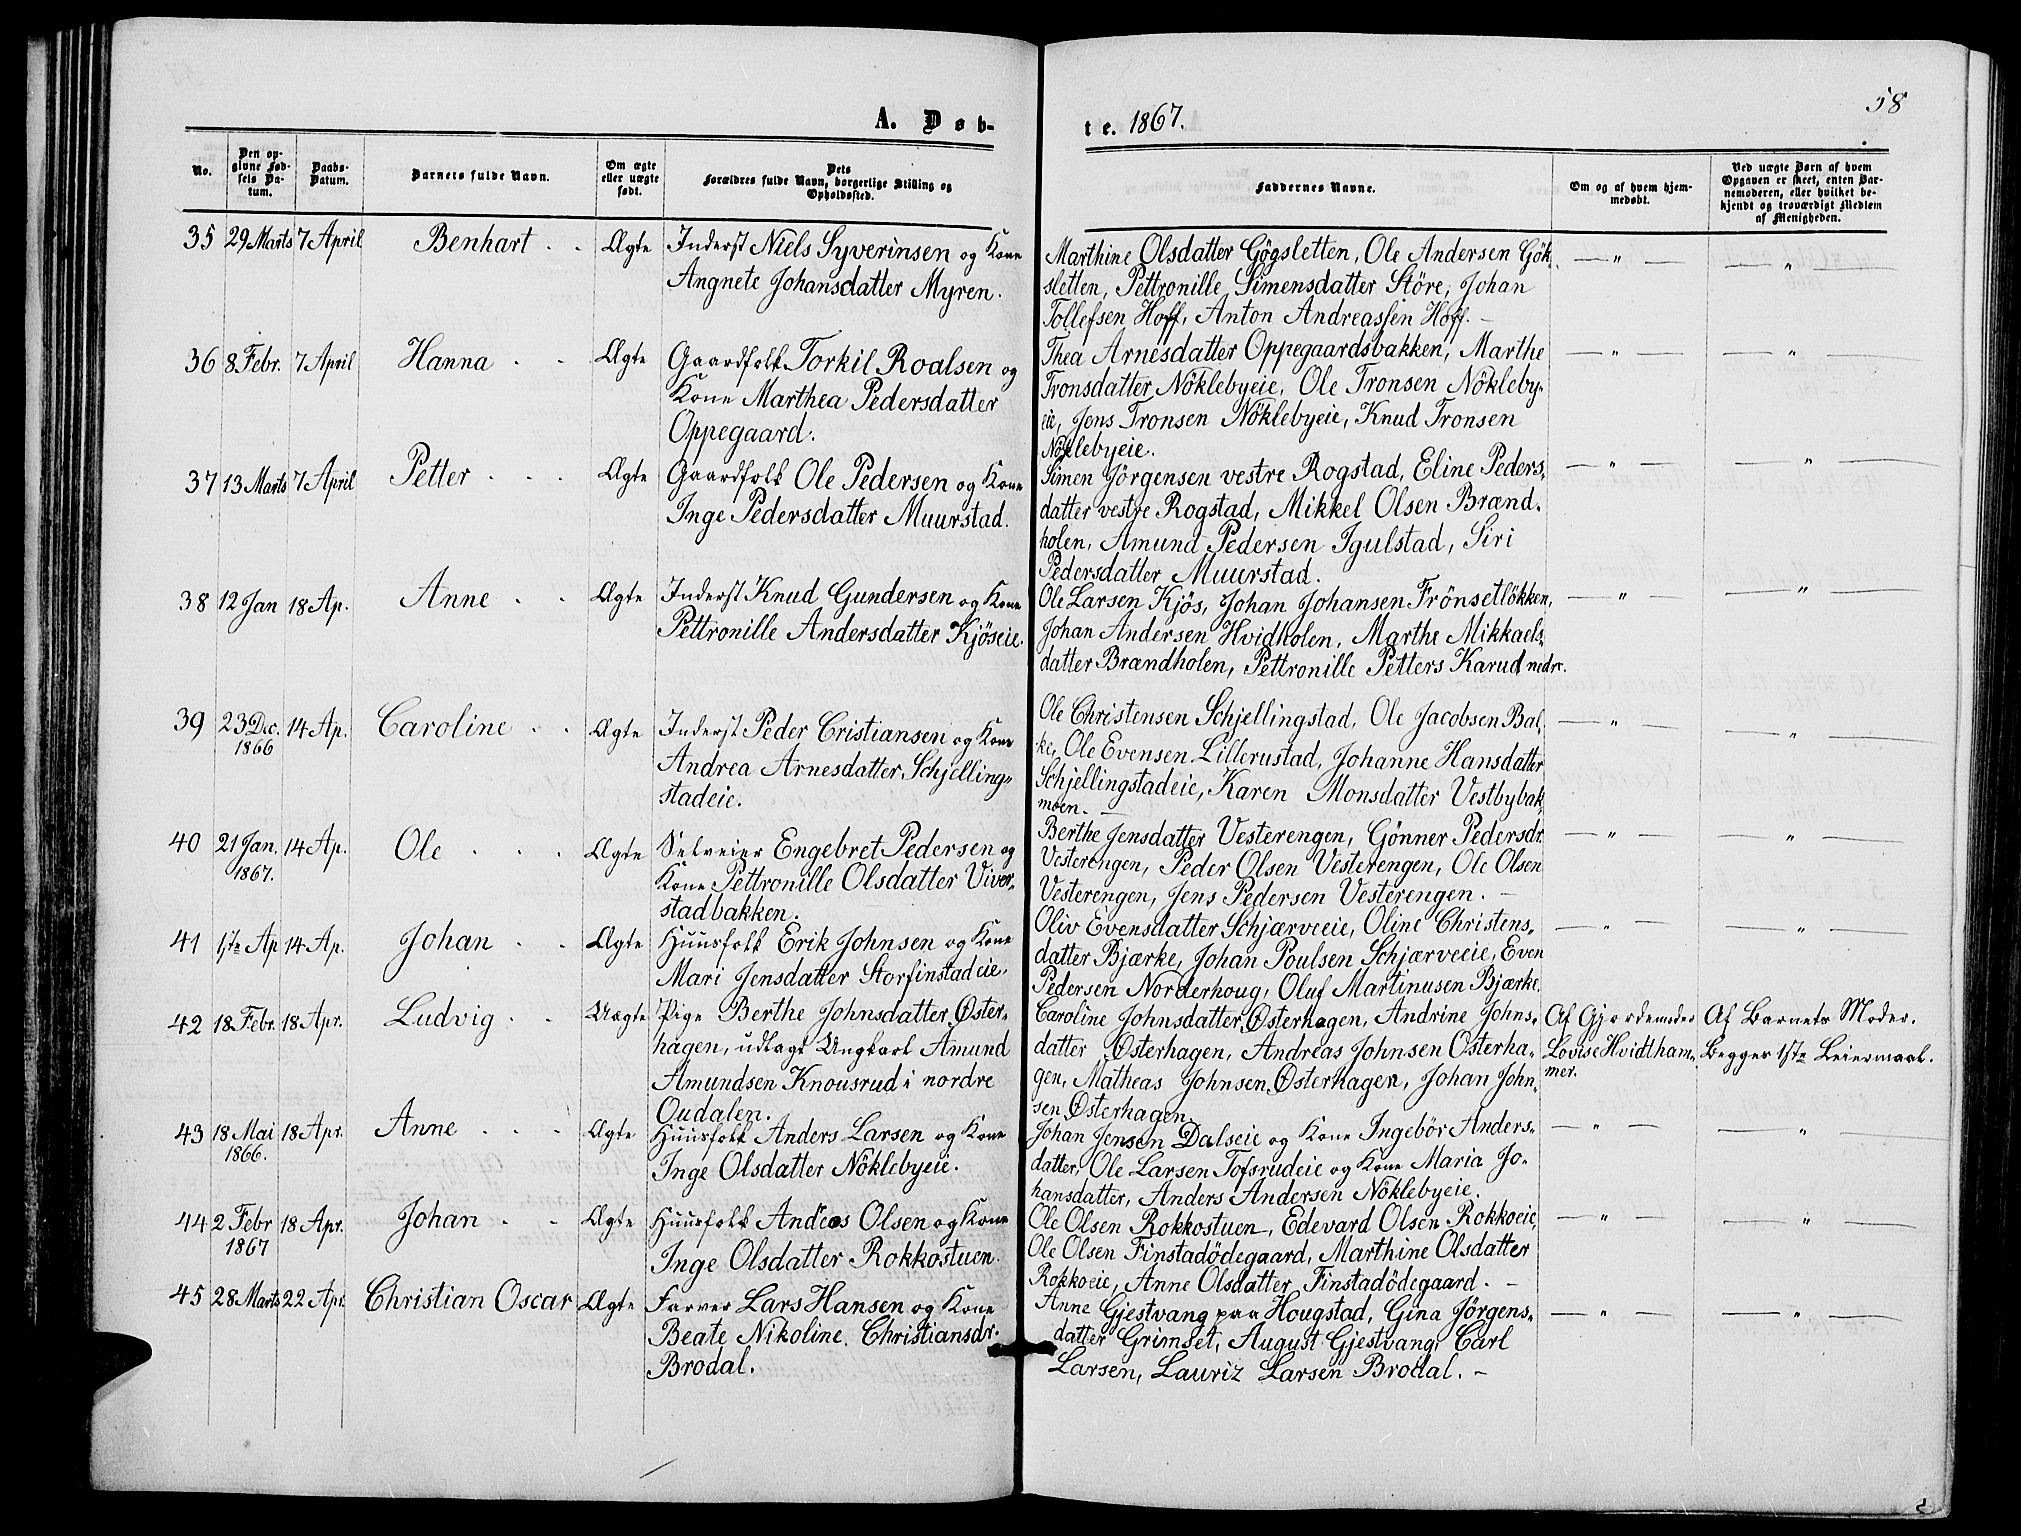 58
A. Døb-
te. 1867.
No.
Den op-
givne Fød-
sels Da-
tum.
Daabs-
Datum.
Barnets fulde Navn.
Om ægte
eller uægte
født.
Dets
Forældres fulde Navn, borgerlige Stilling og
Opholdssted.
Faddernes Navne.
Om og af hvem hjem-
medøbt.
Ved uægte Børn af hvem
Opgaven er skeet, enten Bar-
nemoderen, eller hvilket be-
kjendt og troværdigt Medlem
af Menigheden.
35 29 Marts 7 April Benhart Ægte Inderst Niels Syverinsen og Kone
Angnete Johansdatter Myren.
Marthine Olsdatter Gögsletten, Ole Andersen Gök-
sletten, Pettronille Simensdatter Störe, Johan
Tollefsen Hoff, Anton Andreassen Hoff. —
— " —
— " —
36 8 Febr. 7 April Hanna Ægte Gaardfolk Torkil Roalsen og
Kone Marthea Pedersdatter
Oppegaard.
Thea Arnesdatter Oppegaardsbakken, Marthe
Tronsdatter Nöklebyeie, Ole Tronsen Nökleby-
eie, Jens Tronsen Nöklebyeie, Knud Tronsen
Nöklebyeie.
— " —
— " —
37 13 Marts 7 April Petter Ægte Gaardfolk Ole Pedersen og Kone
Inge Pedersdatter Muurstad.
Simen Jörgensen vestre Rogstad, Eline Peders-
datter vestre Rogstad, Mikkel Olsen Brænd-
holen, Amund Pedersen Igulstad, Siri
Pedersdatter Muurstad.
— " —
— " —
38 12 Jan 18 Ap. Anne Ægte Inderst Knud Gundersen og Kone
Pettronille Andersdatter Kjöseie.
Ole Larsen Kjös, Johan Johansen Frönsetlökken,
Johan Andersen Hvidholen, Marthe Mikkaels-
datter Brændholen, Pettronille Petters Karud nedre.
— " —
— " —
39 23 Dec. 14 Ap. Caroline Ægte Inderst Peder Cristiansen og Kone
1866
Andrea Arnesdatter Schjelling-
stadeie.
Ole Christensen Schjellingstad, Ole Jacobsen Bal-
ke, Ole Evensen Lillerustad, Johanne Hansdatter
Schjellingstadeie, Karen Monsdatter Vestbybak
moen. —
— " —
— " —
40 21 Jan. 14 Ap. Ole Ægte Selveier Engebret Pedersen og
1867.
Kone Pettronille Olsdatter Viver-
stadbakken.
Berthe Jensdatter Vesterengen, Gönner Pedersdr.
Vesterengen, Peder Olsen Vesterengen, Ole Olsen
Vesterengen, Jens Pedersen Vesterengen. —
— " —
— " —
41 1ste Ap 14 Ap. Johan Ægte Huusfolk Erik Johnsen og Kone
Mari Jensdatter Storfinstadeie.
Oliv Evensdatter Schjærveeie, Oline Christens-
datter Bjærke, Johan Poulsen Schjærveeie, Even
Pedersen Norderhoug, Oluf Martinusen Bjærke.
— " —
— " —
42 18 Febr. 18 Apr. Ludvig Uægte Pige Berthe Johnsdatter Øster-
hagen, udlagt Ungkarl Amund
Amundsen Knousrud i nordre
Oudalen.
Caroline Johnsdatter Østerhagen, Andrine Johns-
datter Østerhagen, Andreas Johnsen Østerha-
gen, Matheas Johnsen Østerhagen, Johan John-
sen Østerhagen.
Af Gjordemoder
Lovise Hvidtham-
mer.
Af Barnets Moder.
Begges 1ste Leiermaal.
43 18 Mai 18 Apr. Anne Ægte Huusfolk Anders Larsen og Kone
1866.
Inge Olsdatter Nöklebyeie.
Johan Jensen Dalseie og Kone Ingebör Anders-
datter, Ole Larsen Tofsrudeie og Kone Maria Jo-
hansdatter, Anders Andersen Nöklebyeie.
— " —
— " —
44 2 Febr 18 Apr. Johan Ægte Huusfolk Andeas Olsen og Kone
1867
Inge Olsdatter Rokkostuen.
Ole Olsen Rokkostuen, Edevard Olsen Rokkoeie,
Ole Olsen Finstadödegaard, Marthine Olsdatter
Rokkoeie, Anne Olsdatter Finstadödegaard. —
— " —
— " —
45 28 Marts 22 Apr. Christian Oscar Ægte Farver Lars Hansen og Kone
Beate Nikoline Christiansdr.
Brodal.
Anne Gjestvang paa Hougstad, Gina Jörgens-
datter Grimset, August Gjestvang, Carl
Larsen, Lauriz Larsen Brodal. —
— " —
— " —